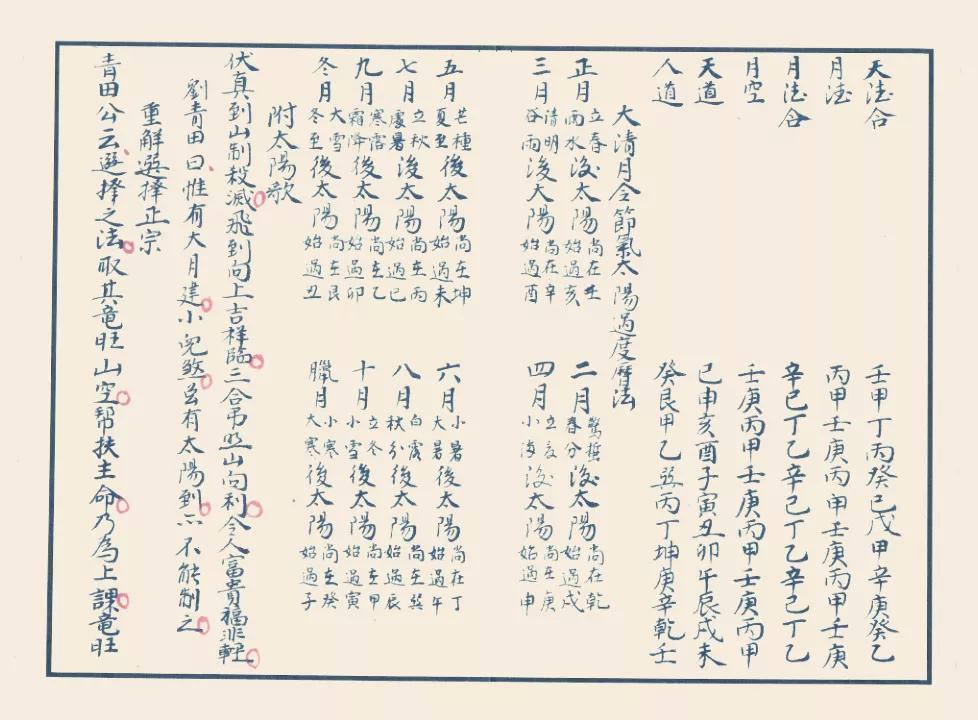 天法合 壬甲丁丙癸己戊甲辛庚癸乙
月法 丙甲壬庚丙甲壬庚丙甲壬庚
月法合 辛己丁乙辛己丁乙辛己丁乙
月空 壬庚丙甲壬庚丙甲壬庚丙甲
天道 巳申亥酉子寅丑卯午辰戌未
人道 癸艮甲乙巽丙丁坤庚辛乾壬
大清月令節氣太陽過度曆法
正月 立春 雨水 後太陽 尚在壬 始過亥 二月 驚蟄 春分 後太陽 尚在乾 始過戌
三月 清明 谷雨 後太陽 尚在辛 始過酉 四月 立夏 小滿 後太陽 尚在庚 始過申
五月 芒種 夏至 後太陽 尚在坤 始過未 六月 小暑 大暑 後太陽 尚在丁 始過午
七月 立秋 處暑 後太陽 尚在丙 始過巳 八月 白露 秋分 後太陽 尚在巽 始過辰
九月 寒露 霜降 後太陽 尚在乙 始過卯 十月 立冬 小雪 後太陽 尚在甲 始過寅
冬月 大雪 冬至 後太陽 尚在艮 始過丑 臘月 小寒 大寒 後太陽 尚在癸 始過子
附太陽歌
伏真到山制殺滅。飛到向上吉祥臨。三合吊照山向利。令人富貴福非輕。
劉青田曰、惟有大月建。小兒煞。虽有太陽到。亦不能制之。
重解選擇正宗
青田公云、選擇之法。取其竜旺山空。幇扶主命。乃為上課。竜旺